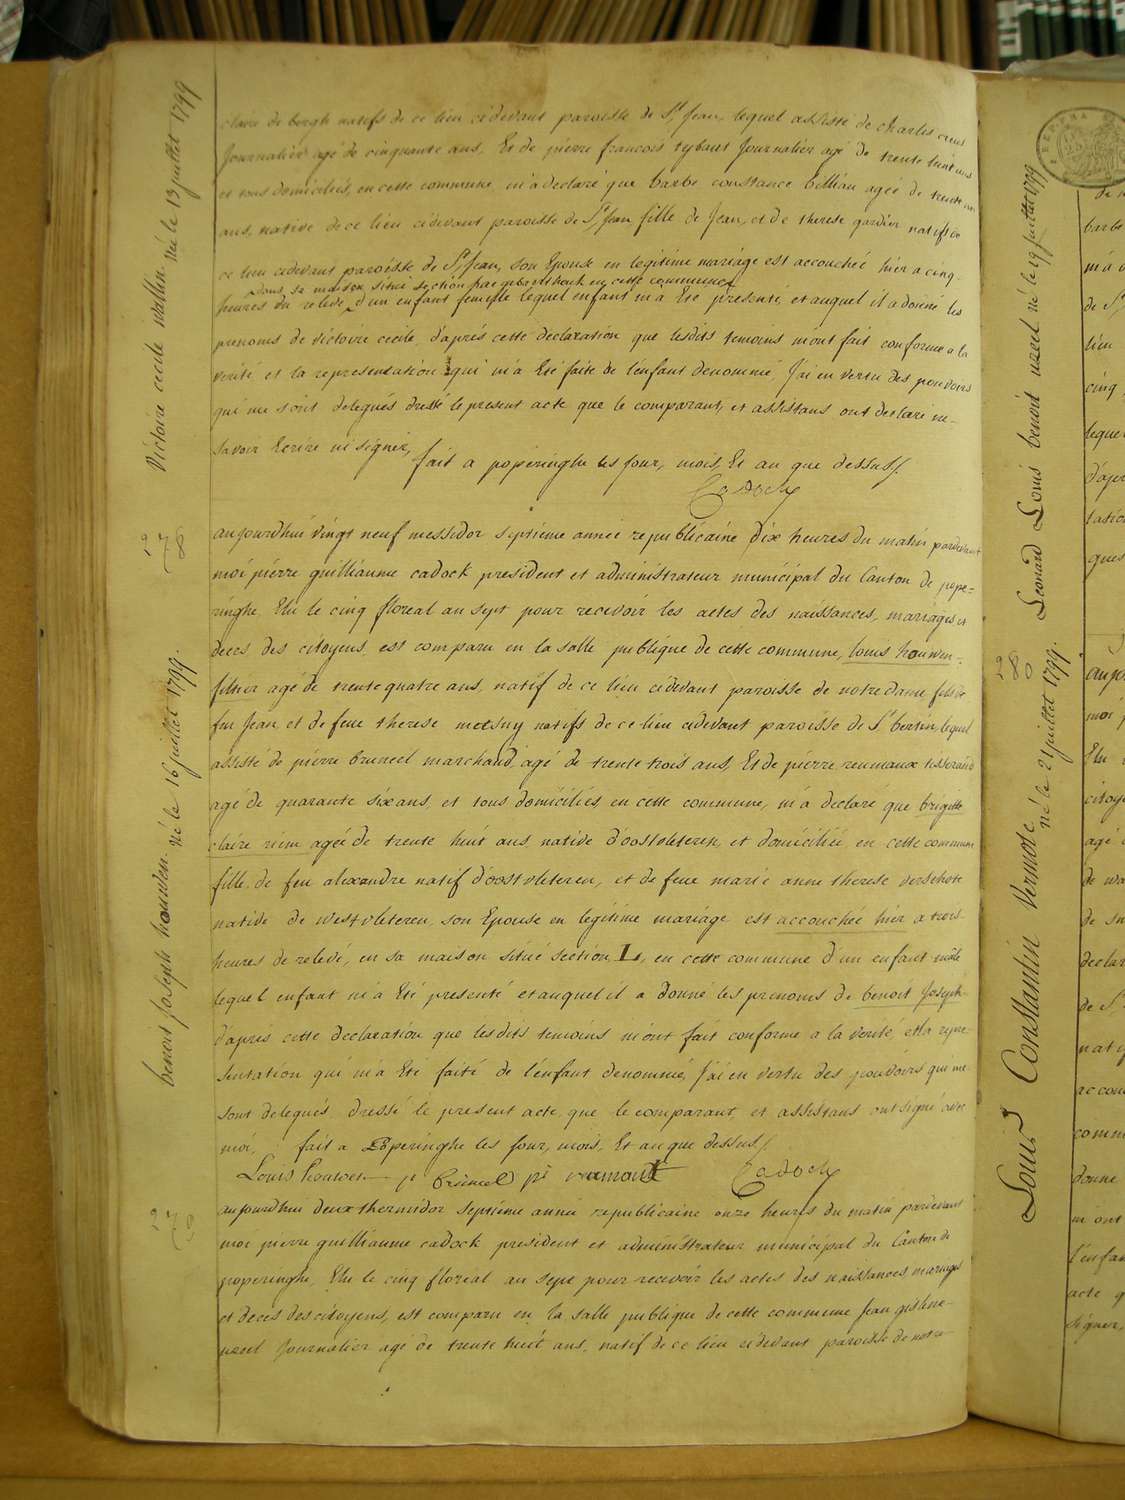 Victoire cecile wallin né le 13 juillet 1799
claire de bergh natifs de ce lieu cidevant paroisse de St Jean, lequel assisté de charles
Journalier agé de cinquante ans, Et de pierre francois tybaert Journalier agé de trente huit ans
et tous domiciliés, en cette commune, m'a declaré que barbe constance billiau agée de trente
ans, native de ce lieu cidevant paroisse de St Jean fille de Jean, et de therese gardin natifs de
ce lieu cidevant paroisse de St Jean, son Epouse en legitime mariage est accouchée hier a cinq
dans sa maison situé section en cette commune
heures du relevé, d'un enfant femelle lequel enfant m'a Eté presenté, et auquel il a donné les
prenoms de victoire cecile, d'aprés cette declaration que lesdits temoins m'ont fait conforme a la
verité et la representation qui m'a Eté faite de l'enfant denommé, J'ai en vertu des pouvoirs
qui me sont delegués dressé le present acte que le comparant, et assistans ont declaré ne
savoir Ecrire ni signer,
fait a poperinghe les jour, mois, Et an que dessus/.
Cadock
278
benoit joseph houwen né le 16 juillet 1799.
aujourdhui vingt neuf messidor septieme année republicaine dix heures du matin pardevant
moi pierre guilliaume cadock president et administrateur municipal du Canton de pope=
ringhe, Elu le cinq floreal an sept pour recevoir les actes des naissances, mariages et
deces des citoyens, est comparu en la salle publique de cette commune, louis houwen
filtier agé de trente quatre ans, natif de ce lieu cidevant paroisse de notre dame fils de
feu Jean, et de feue therese metsuy natifs de ce lieu cidevant paroisse de St bertin, lequel
assisté de pierre bruneel marchand, agé de trente trois ans, Et de pierre reumaux tisserand
agé de quarante six ans, et tous domiciliés, en cette commune, m'a declaré que brigitte
claire agée de trente huit ans, native d'oostvleteren, et domiciliée, en cette commune
fille, de feu alexandre natif d'oostvleteren, et de feue marie anne therese verschote
native de westvleteren, son Epouse en legitime mariage est accouchée hier a trois
heures de relevé, en sa maison situé section L, en cette commune d'un enfant mâle
lequel enfant m'a Eté presenté et auquel il a donné les prenoms de benoit Joseph
d'aprés cette declaration que lesdits temoins m'ont fait conforme a la verité, et la repre=
sentation qui m'a Eté faite de l'enfant denommé, J'ai en vertu des pouvoirs qui me
sont delegués, dressé le present acte, que le comparant, et assistans ont signé avec
moi, fait a Poperinghe les jour, mois, Et an que dessus/.
Louis houwen p bruneel pr reumaux Cadock
279
aujourdhui deux thermidor septieme année republicaine onze heures du matin pardevant
moi pierre guilliaume cadock president et administrateur municipal du Canton de
poperinghe, Elu le cinq floreal an sept pour recevoir les actes des naissances mariages
et deces des citoyens, est comparu en la salle publique de cette commune Jean gislene
uzeel Journalier agé de trente huit ans, natif de ce lieu cidevant paroisse de notre
Leonard Louis benoit uzeel né le 19 juillet 1799
280
Louis Constantin Vermote né le 21 juillet 1799.
barbe
m'a
de St
lieu
cinq
lequel
d'apr
tation
ques
aujou
moi p
Elu
citoye
agé
de
de
declar
de St
natif
accou
comm
donné
m'ont
l'enfan
acte q
signer,